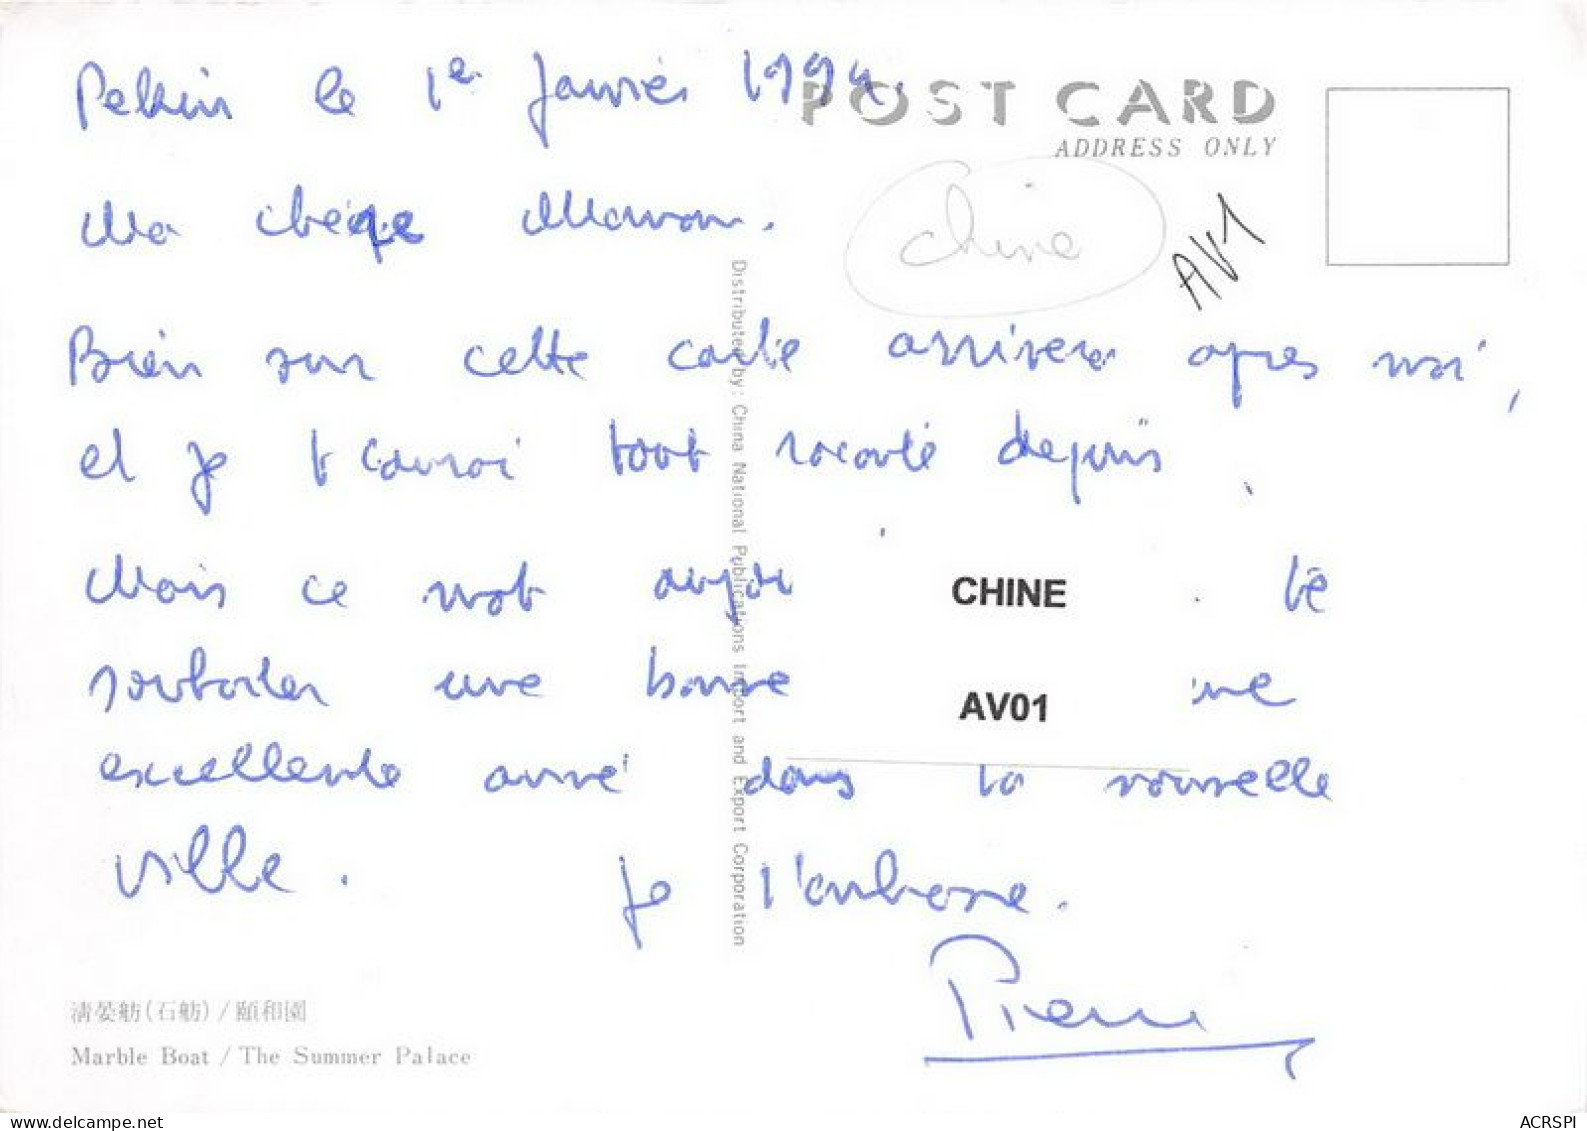 Pekin le 1e Janvier 1994.
POST CARD
ADDRESS ONLY
Chine
AV1
Ma chère Maman.
Bien sur cette carte arrivera apres moi,
et je t'aurai tout raconté depuis.
Mais ce mot CHINE te
souhaiter une bonne AV01 une
excellente année dans ta nouvelle
ville. Je t'embrasse.
Pierre
Distributed by: China National Publications Import and Export Corporation
清晏舫(石舫)/頤和園
Marble Boat / The Summer Palace
ACRSPI